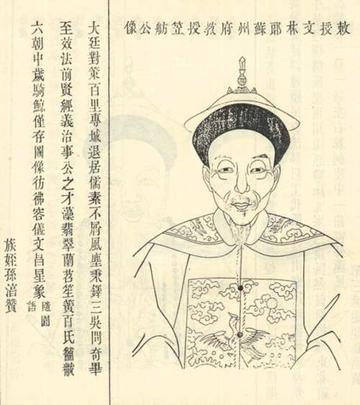 敕授文林郎蘇州府教授笠舫公像
大廷對策百里專城退居儒素不屑風塵秉鐸三吳問奇畢
至效法前賢經義治事公之才藻翡翠蘭苕笙簧百氏黼黻
六朝中歲騎鯨僅存圖像彷彿容儀文昌星象隨園語
族姪孫贊